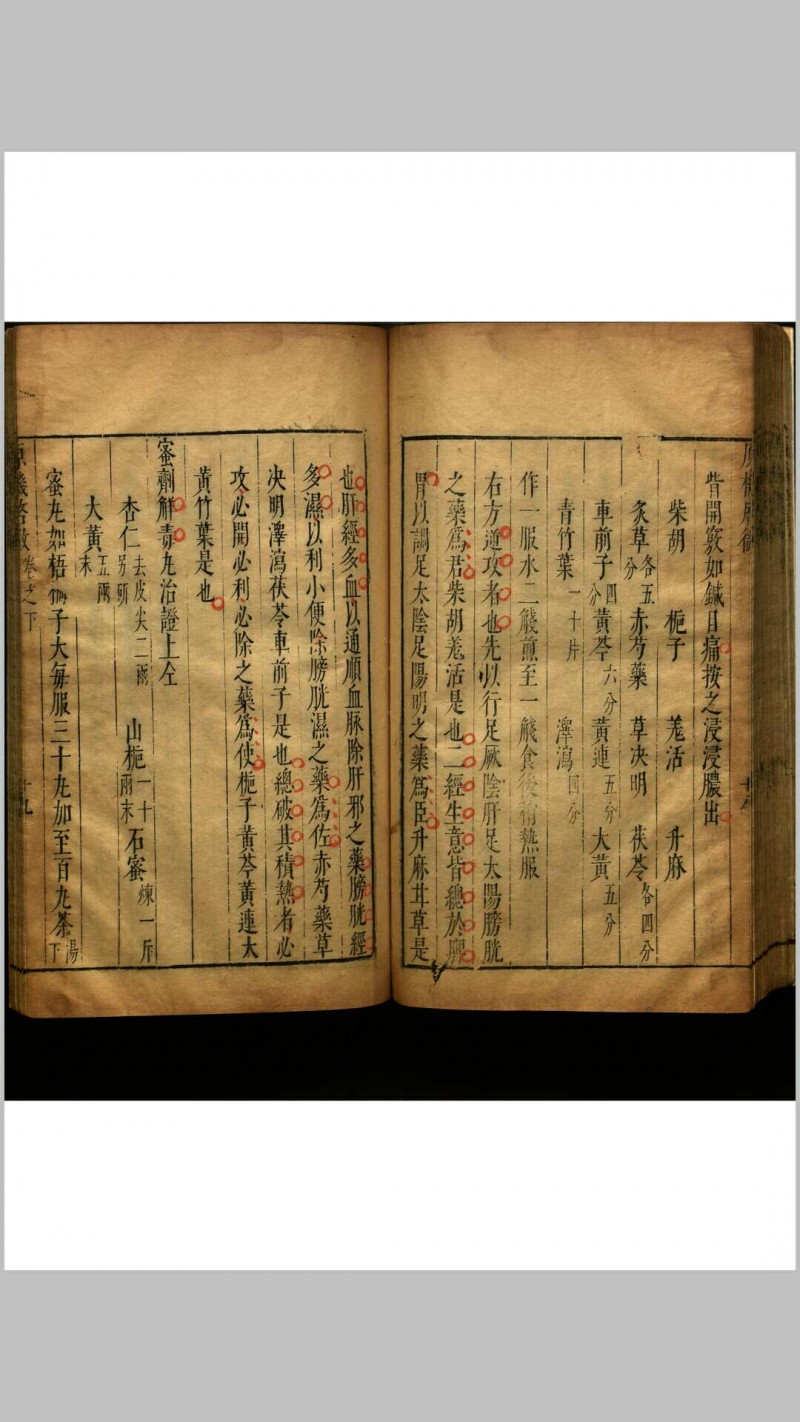 眥開竅如鍼目痛按之浸浸膿出
柴胡 梔子 羗活 升麻
炙草各五分 赤芍藥 草决明 茯苓各四分
車前子四分 黃芩六分 黃連五分 大黃五分
青竹葉一十片 澤瀉四分
作一服水二醆煎至一醆食後稍熱服
右方通攻者也先以行足厥陰肝足太陽膀胱
之藥爲君柴胡羗活是也二經生意皆總於脾
胃以調足太陰足陽明之藥爲臣升麻甘草是
也肝經多血以通順血脉除肝邪之藥膀胱經
多濕以利小便除膀胱濕之藥爲佐赤芍藥草
决明澤瀉茯苓車前子是也總破其積熱者必
攻必開必利必除之藥爲使梔子黃芩黃連大
黃竹葉是也
蜜劑解毒丸治證上仝
杏仁去皮尖二兩另研 山梔一十兩末 石蜜煉一斤
大黃五兩末
蜜丸如梧桐子大每服三十丸加至百丸茶湯下
原機啓微 卷之下 十九